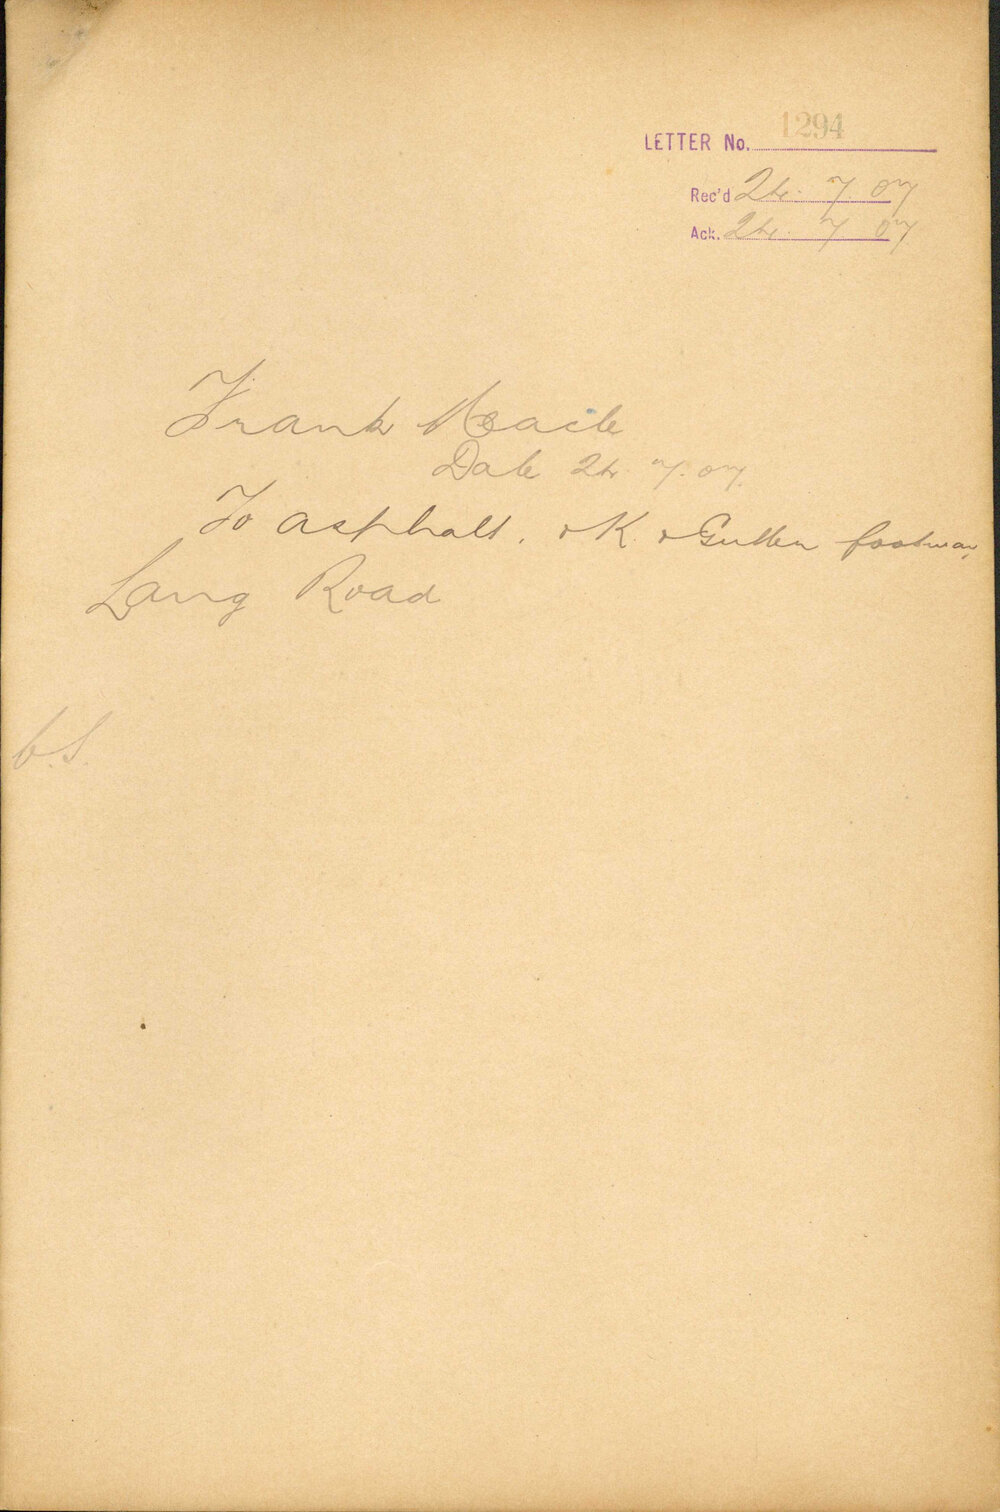 LETTER No. 1294
Rec'd 24. 7. 07
Ack. 24. 7. 07
Frank
Date 24. 7. 07.
To asphalt. & K. & Gutter footway
Lang Road